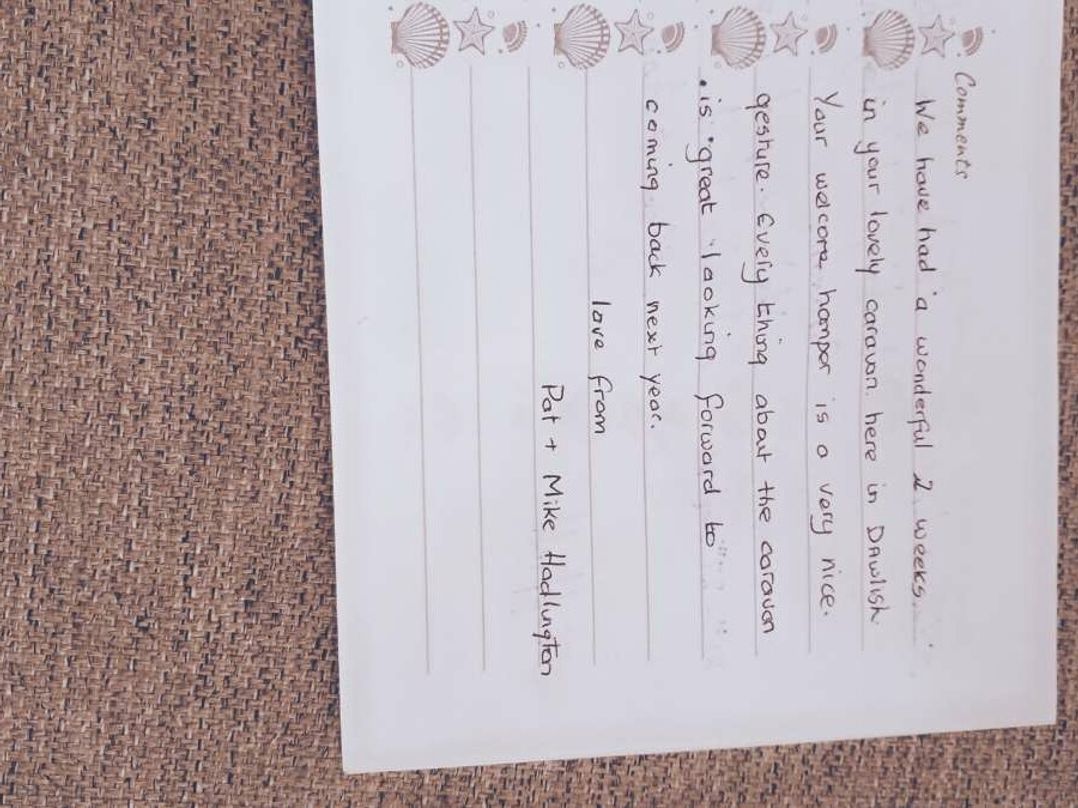 Comments
We have had a wonderful 2 weeks
in your lovely caravan here in Dawlish.
Your welcome hamper is a very nice.
gesture. Every thing about the caravan
is great looking forward to
coming back next year.
love from
Pat + Mike Hadlington